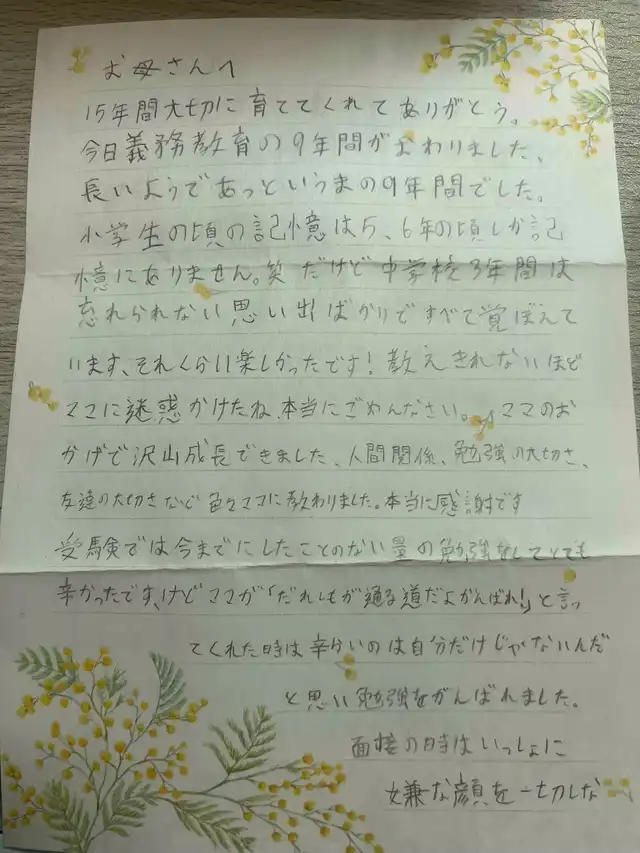 お母さんへ
15年間大切に育ててくれてありがとう。
今日義務教育の9年間がおわりました、
長いようであっというまの9年間でした。
小学生の頃の記憶は5、6年の頃しか記
憶にありません。笑 だけど中学校3年間は
忘れられない思い出ばかりですべて覚ぼえて
います、それくらい楽しかったです！教えきれないほど
ママに迷惑かけたね、本当にごめんなさい。ママのお
かげで沢山成長できました、人間関係、勉強の大切さ、
友達の大切さなど色々ママに教わりました。本当に感謝です
受験では今までにしたことのない量の勉強をしてとても
辛かったです、けどママが「だれしもが通る道だよがんばれ!」と言っ
てくれた時は辛いのは自分だけじゃないんだ
と思い勉強をがんばれました。
面接の時はいっしょに
嫌な顔を一切しな